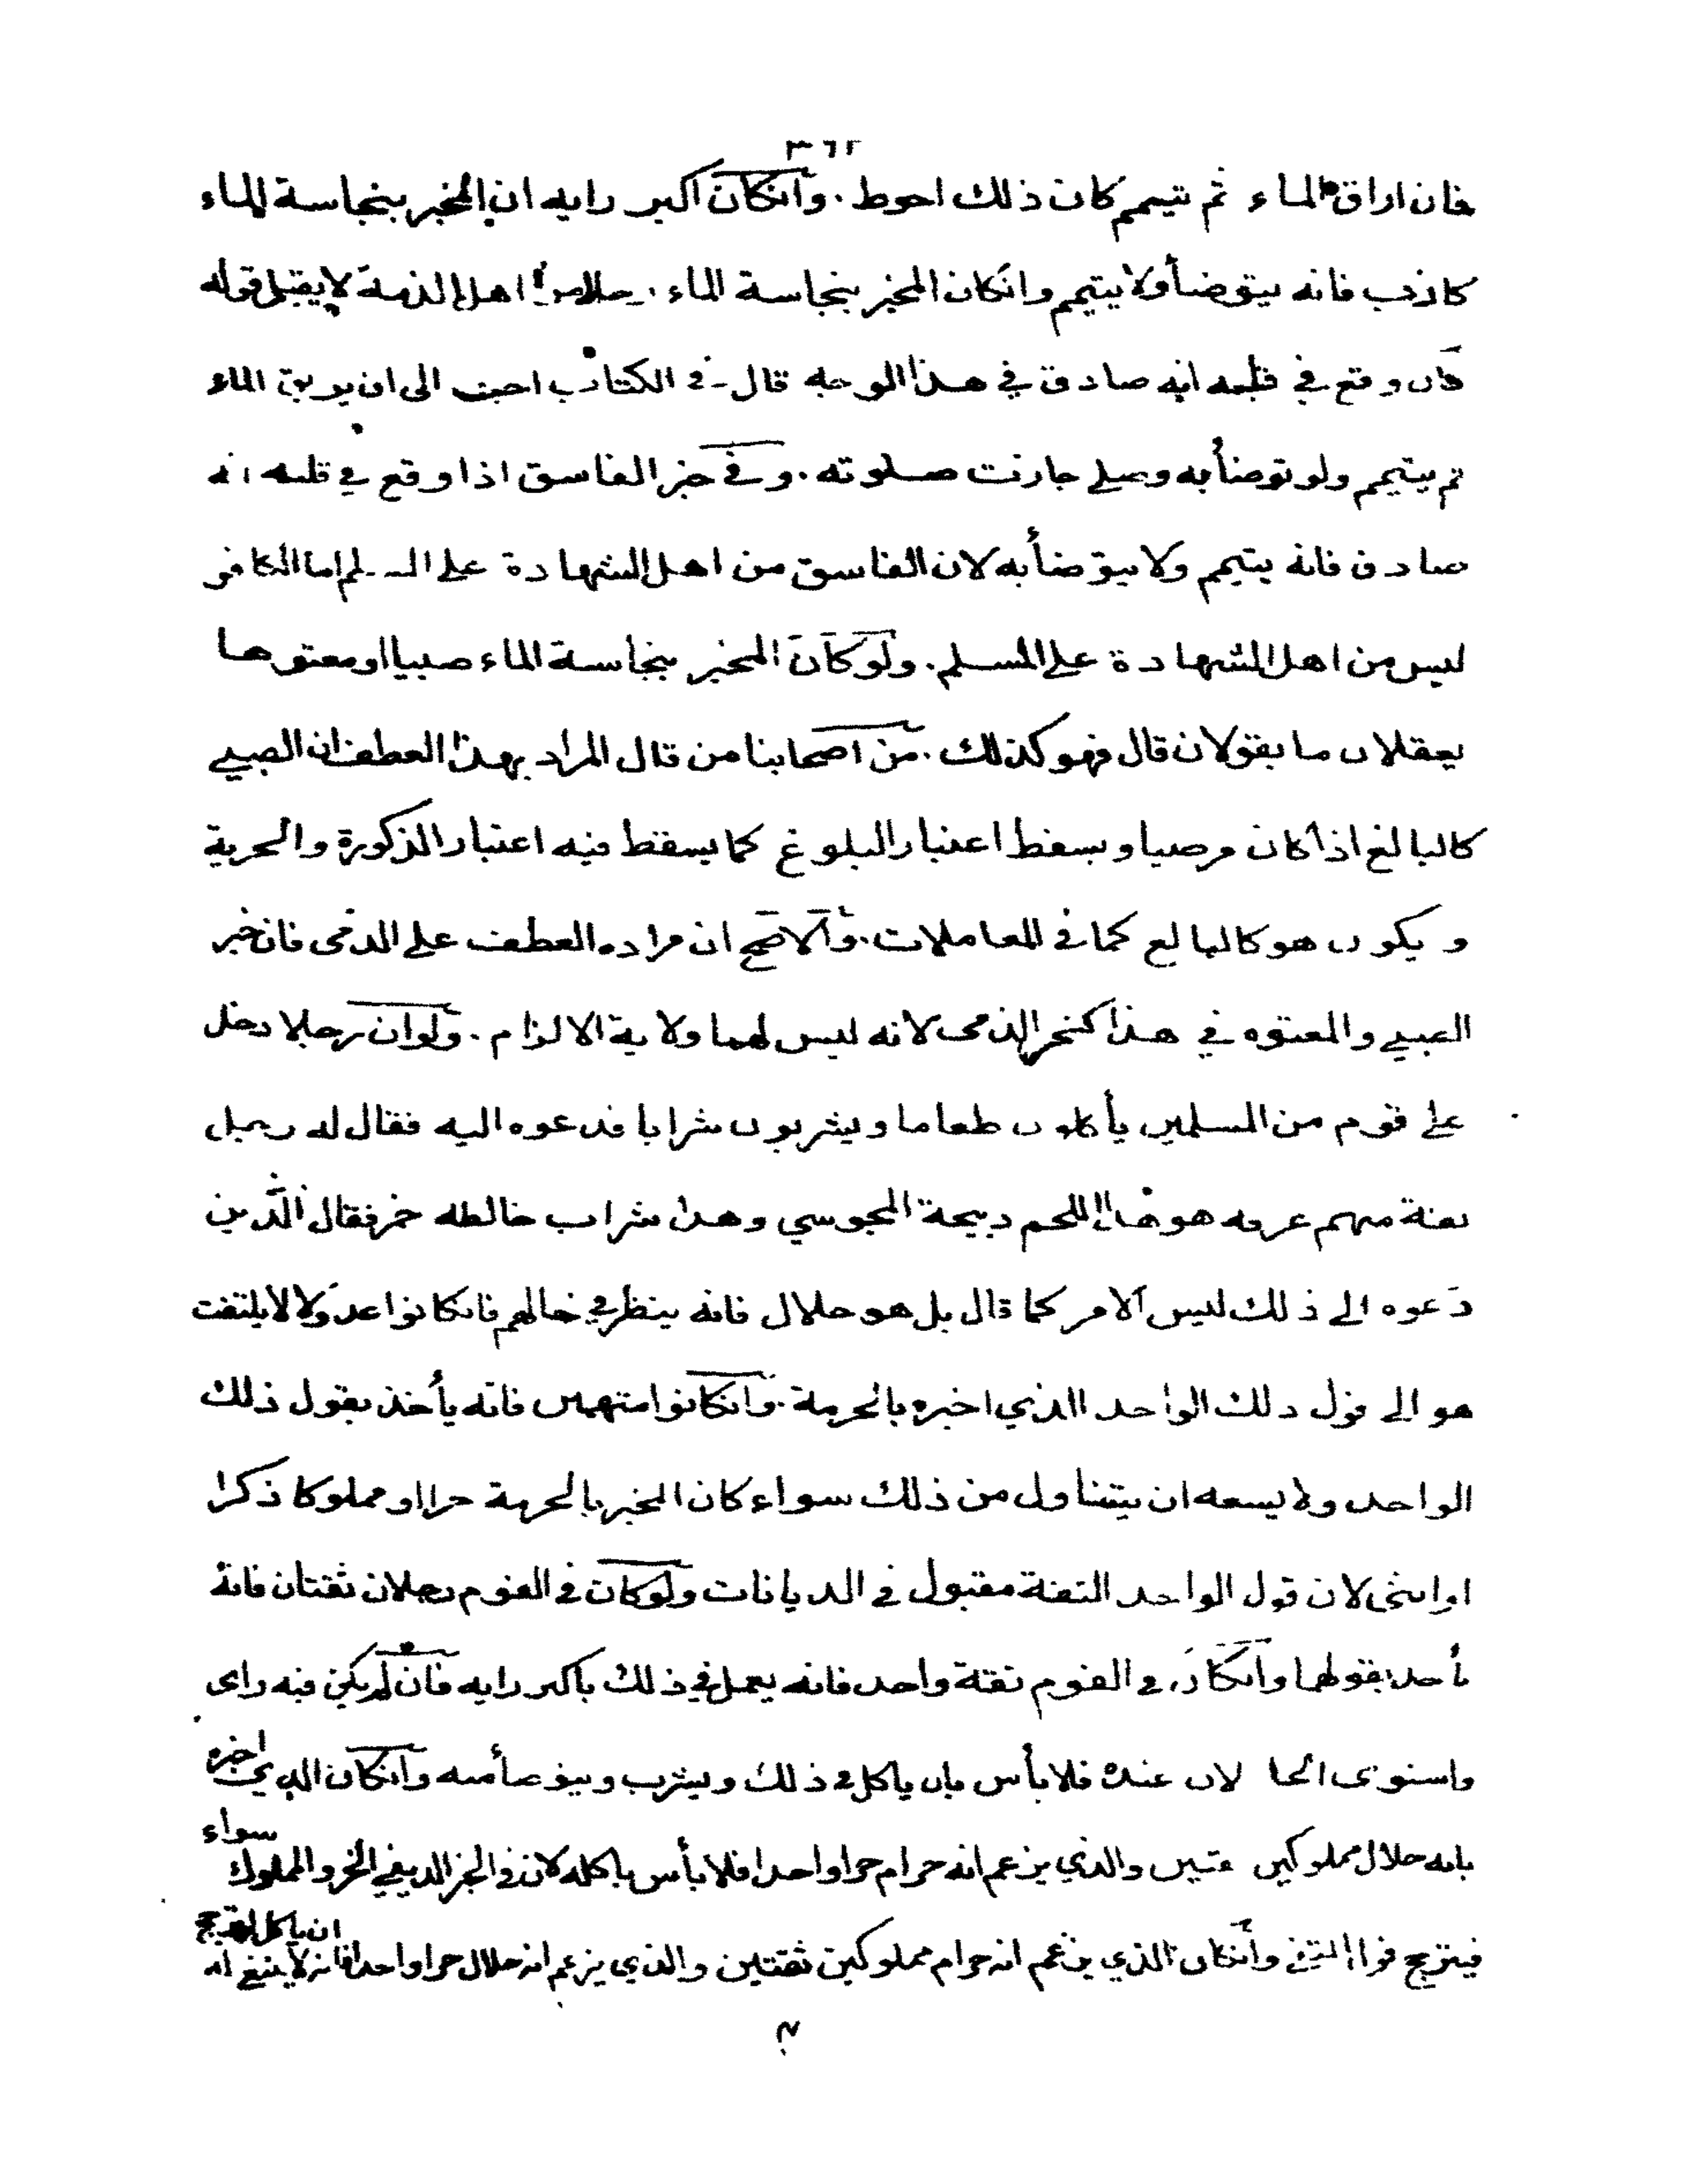 ٣٦٢
فان اراق الماء ثم تيمم كان ذلك احوط . وانكان اكبر رايه ان المخبر بنجاسة الماء
كاذب فانه يتوضأ ولا يتيمم وانكان المخبر بنجاسة الماء رجلا من اهل الذمة لا يقبل قوله
فان وقع في قلبه انه صادق في هذا الوجه قال في الكتاب احب الى ان يريق الماء
ثم يتيمم ولو توضأ به وصلى جازت صلوته . وفي خبر الفاسق اذا وقع في قلبه انه
صادق فانه يتيمم ولا يتوضأ به لان الفاسق من اهل الشهادة على المسلم اما الكافر
ليس من اهل الشهادة على المسلم . ولو كان المخبر بنجاسة الماء صبيا او معتوها
يعقلان ما يقولان قال فهو كذلك . من اصحابنا من قال المراد بهذا العطف ان الصبي
كالبالغ اذا كان مرضيا ويسقط اعتبار البلوغ كما يسقط فيه اعتبار الذكورة والحرية
ويكون هو كالبالغ كما في المعاملات . والاصح ان مراده العطف على الذمى فان خبر
الصبي والمعتوه في هذا كخبر الذمى لانه ليس لهما ولاية الالزام . ولو ان رجلا دخل
على قوم من المسلمين يأكلون طعاما ويشربون شرابا فدعوه اليه فقال له رجل
ثقة منهم عرفه هو هذا اللحم ذبيحة المجوسي وهذا شراب خالطه خمر فقال الذين
دعوه الى ذلك ليس الامر كما قال بل هو حلال فانه ينظر في حالهم فانكانوا عدولا لا يلتفت
هو الى قول ذلك الواحد الذي اخبره بالحرمة . وانكانوا متهمين فانه يأخذ بقول ذلك
الواحد ولا يسعه ان يتناول من ذلك سواء كان المخبر بالحرمة حرا او مملوكا ذكرا
او انثى لان قول الواحد الثقة مقبول في الديانات ولو كان في القوم رجلان ثقتان فانه
يأخذ بقولهما وانكان في القوم ثقة واحد فانه يعمل في ذلك باكبر رايه فان لم يكن فيه راى
واستوى الحالان عنده فلا بأس بان ياكل في ذلك ويشرب ويتوضأ منه وانكان الذي اخبره
بانه حلال مملوكين ثقتين والذي يزعم انه حرام حرا واحدا فلا بأس باكله لان في الخبر الديني الحر والمملوك سواء
فيترجح قول المثنى وانكان الذي يزعم انه حرام مملوكين ثقتين والذي يزعم انه حلال حرا واحدا فانه لا ينبغي له ان ياكل